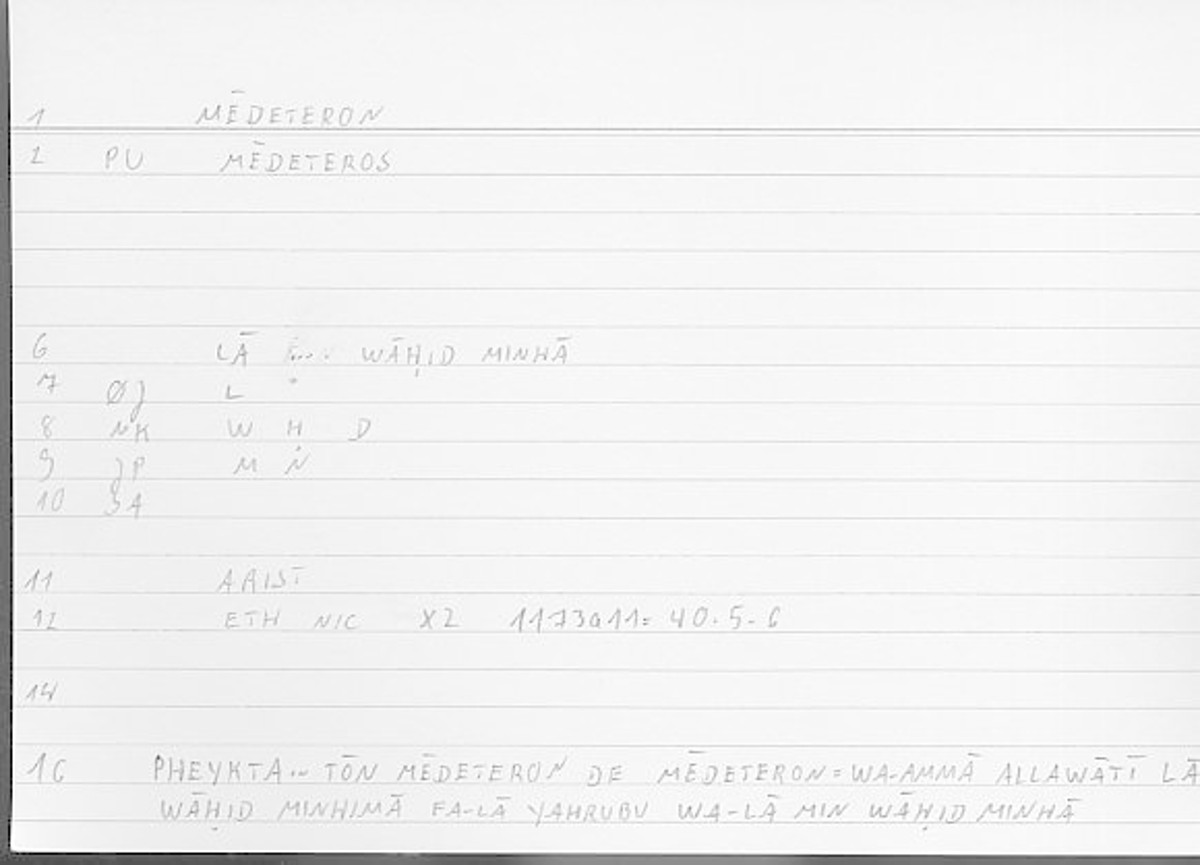 1 MĒDETERON
2 PU MĒDETEROS
6 LĀ WĀḤID MINHĀ
7 ØJ L
8 NK W Ḥ D
9 JP M N
10 SA
11 ARIST
12 ETH NIC X2 1173a11= 40.5-6
14
16 PHEYKTA.. TŌN MĒDETERON DE MĒDETERON=WA-AMMĀ ALLAWĀTĪ LĀ
WĀḤID MINHIMĀ FA-LĀ YAHRUBU WA-LĀ MIN WĀḤID MINHĀ